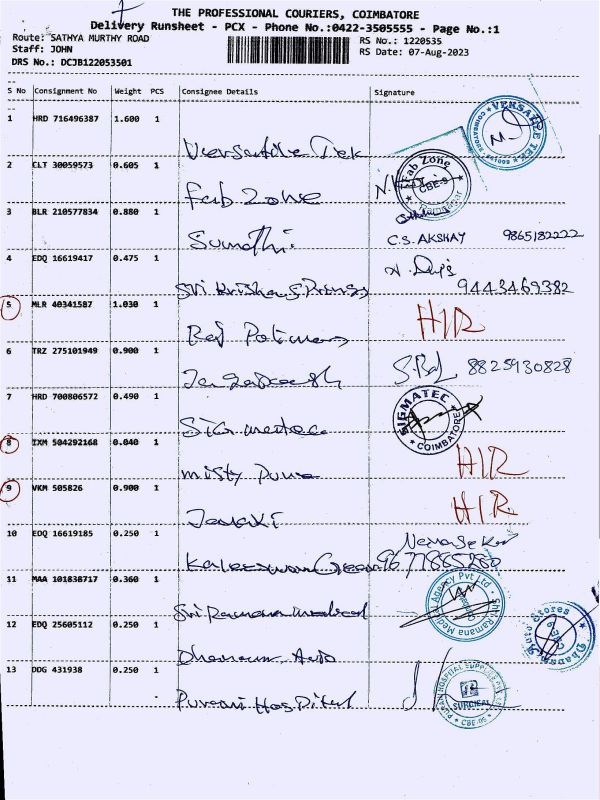 THE PROFESSIONAL COURIERS, COIMBATORE
Delivery Runsheet - PCX - Phone No.:0422-3505555 - Page No.:1
Route: SATHYA MURTHY ROAD
RS No.: 1220535
Staff: JOHN
RS Date: 07-Aug-2023
DRS No.: DCJB122053501
S No Consignment No Weight PCS Consignee Details Signature
1 HRD 716496387 1.600 1
VERSATILE TEK
COIMBATORE
2 CLT 30059573 0.605 1
Fab Zone
Fab Zone
CBE-9
Ramnagar
3 BLR 210577834 0.880 1
Sumathi
C.S. AKSHAY 9865182222
4 EDQ 16619417 0.475 1
Sri Krishna
9443469382
5 MLR 40341587 1.030 1
HIR
6 TRZ 275101949 0.900 1
8825930828
7 HRD 700806572 0.490 1
SIGMATEC
COIMBATORE
8 IXM 504292168 0.040 1
misty
HIR
9 VKM 505826 0.900 1
Janaki
HIR.
10 EDQ 16619185 0.250 1
9677865280
11 MAA 101838717 0.360 1
Sri Ramana medical
Shri Ramana Medical Agency Pvt Ltd
12 EDQ 25605112 0.250 1
Auto
Auto Stores
13 DDG 431938 0.250 1
Hospital
HOSPITAL
SURGICAL